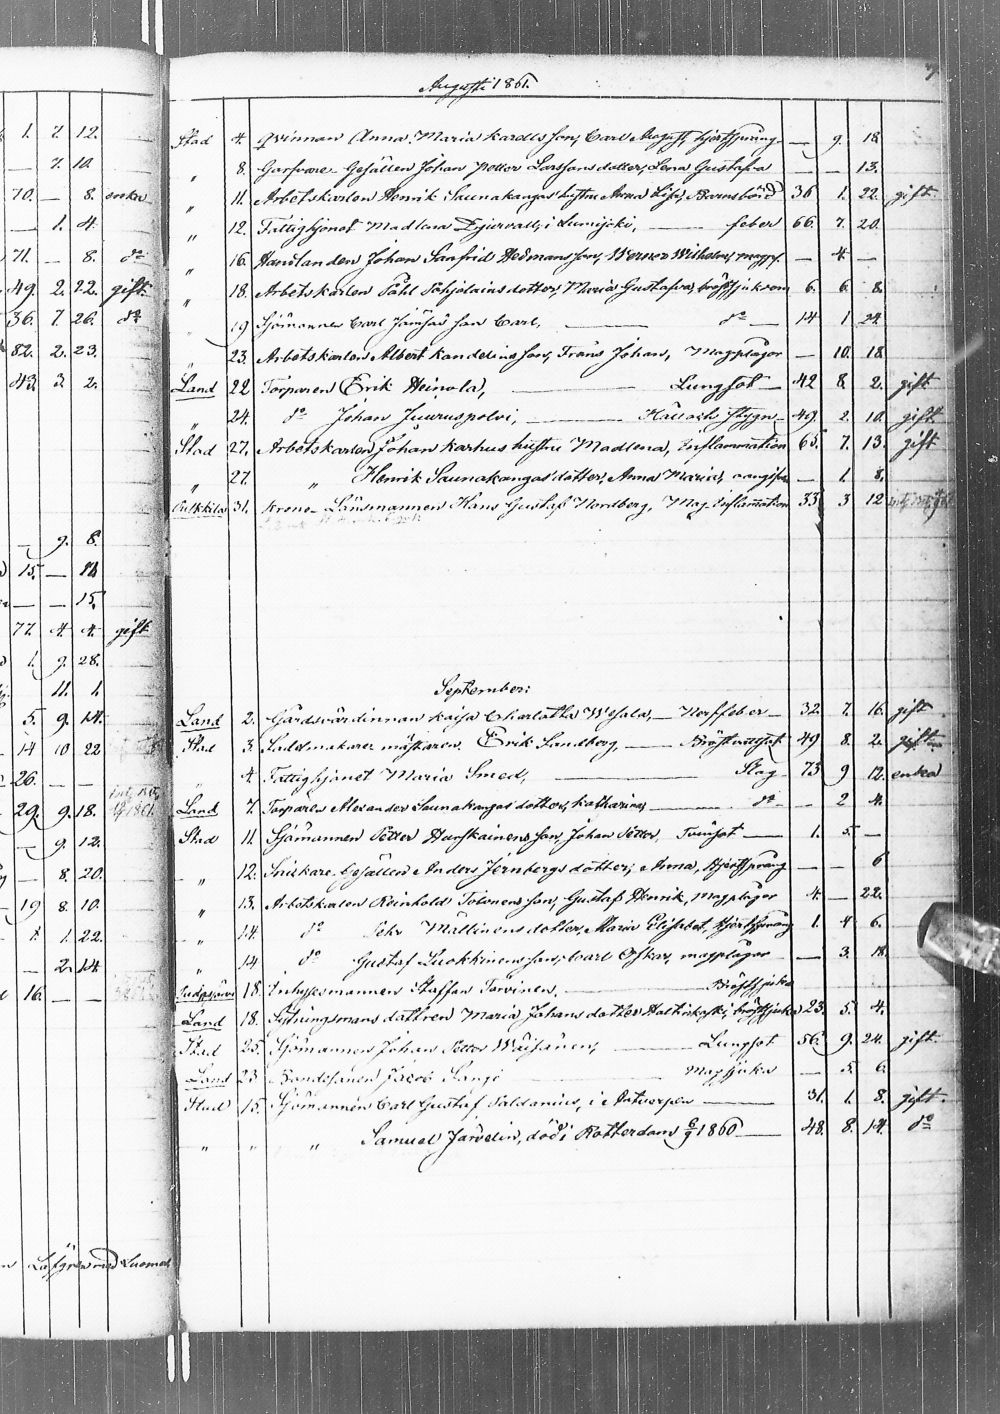 Augusti 1861.
Stad 4. Qvinnan Anna Maria Kardells son, Carl August, hjertsprång — 9. 18.
„ 8. Garfvare Gesällen Johan Petter Larssons dotter, Lena Gustafva — — 13.
„ 11. Arbetskarlen Henrik Saunakangas hustru Anna Lisa, Barnsbörd 36 1. 22. gift
„ 12. Fattighjonet Madlena i Lumijoki, — feber 66. 7. 20.
„ 16. Handlanden Johan Sanfrid Hedmans son, Werner Wilhelm, magpl. — 4 —
„ 18. Arbetskarlen Påhl Pohjolains dotter, Maria Gustafva, bröstsjukdom 6. 6 8.
19 Sjömannen Carl son Carl, — do — 14 1 24.
„ 23. Arbetskarlen Albert Kandelins son, Frans Johan, Magplågor — 10. 18.
Land 22. Torparen Erik Heinola, — Lungsot — 42 8. 2. gift
„ 24. do Johan Juuruspolvi, — Håll och stygn — 49. 2. 10. gift
Stad 27. Arbetskarlen Johan Karhus hustru Madlena, Inflammation 65. 7. 13. gift
„ 27. „ Henrik Saunakangas dotter, Anna Maria, — 1. 8.
Pulkkila 31. Krono Länsmannen Hans Gustaf Nordberg, Mag-Inflammation 33 3 12
September:
Land 2. Gårdsvärdinnan Kaisa Charlotta Wesala, — Nerffeber — 32. 7. 16. gift
Stad 3. Sadelmakare mästaren Erik Sandberg, — Bröstvattsot 49 8. 2. gift
„ 4. Fattighjonet Maria Smed, — Slag 73 9 12. enka
Land 7. Torparen Alexander Saunakangas dotter, Katharina, — do — 2 4.
Stad 11. Sjömannen Petter Hurskainens son, Johan Petter, — 1. 5. —
„ 12. Snickare Gesällen Anders Jernbergs dotter, Anna, hjertsprång — — 6
„ 13. Arbetskarlen Reinhold Tolonens son, Gustaf Henrik, magplågor 4. — 22.
„ 14. do Pehr Mällinens dotter, Maria Elisabet, hjertsprång 1. 4 6.
„ 14 do Gustaf Luokkinens son, Carl Oskar, magplågor — 3. 18.
Pudasjärvi 18. Inhysesmannen Staffan Törvinen, — Bröstsjuka
Land 18. Sytningsmans dottren Maria Johans dotter Haltiskoski, bröstsjuka 23. 5. 4.
Stad 25. Sjömannen Johan Petter Wäisänen, — Lungsot 56. 9. 24. gift
Land 23 Bondsonen Jacob — Magsjuka — 5. 6.
Stad 15. Sjömannen Carl Gustaf Soldanius, i Antverpen — 31. 1. 8. gift
„ „ „ Samuel Järvelin, död i Rotterdam 6/9 1860 — 48. 8. 14. do
1. 7. 12.
— 7. 10.
70. — 8. enka
— 1. 4.
71. — 8. do
49. 2. 22. gift
36. 7. 26. do
82. 2. 23.
43. 3. 2.
— 9. 8.
15. — 11.
— — 15.
77. 4. 4. gift
1. 9. 28.
11. 1.
5. 9. 14.
14 10 22
26. — —
29. 9. 18.
— 9. 12.
— 8. 20.
19 8. 10.
1. 1. 22.
— 2. 14.
16. — —
Löfgren med Luomala